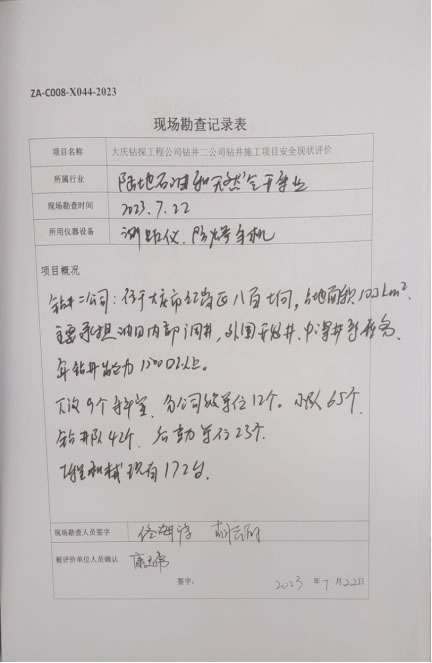 ZA-C008-X044-2023
现场勘查记录表
项目名称 大庆钻探工程公司钻井二公司钻井施工项目安全现状评价
所属行业 陆地石油和天然气开采业
现场勘查时间 2023.7.22
所用仪器设备 测距仪、防爆手机
项目概况
钻井二公司:位于大庆市红岗区八百垧,占地面积
主要承担油田内部调井,外围开发井、中深井等任务,
年钻井能力1500口以上。
下设9个科室,分公司级单位12个。小队65个,
钻井队42个,后勤单位23个.
现有172台.
现场勘查人员签字
被评价单位人员确认
签字: 2023 年 7 月 22 日